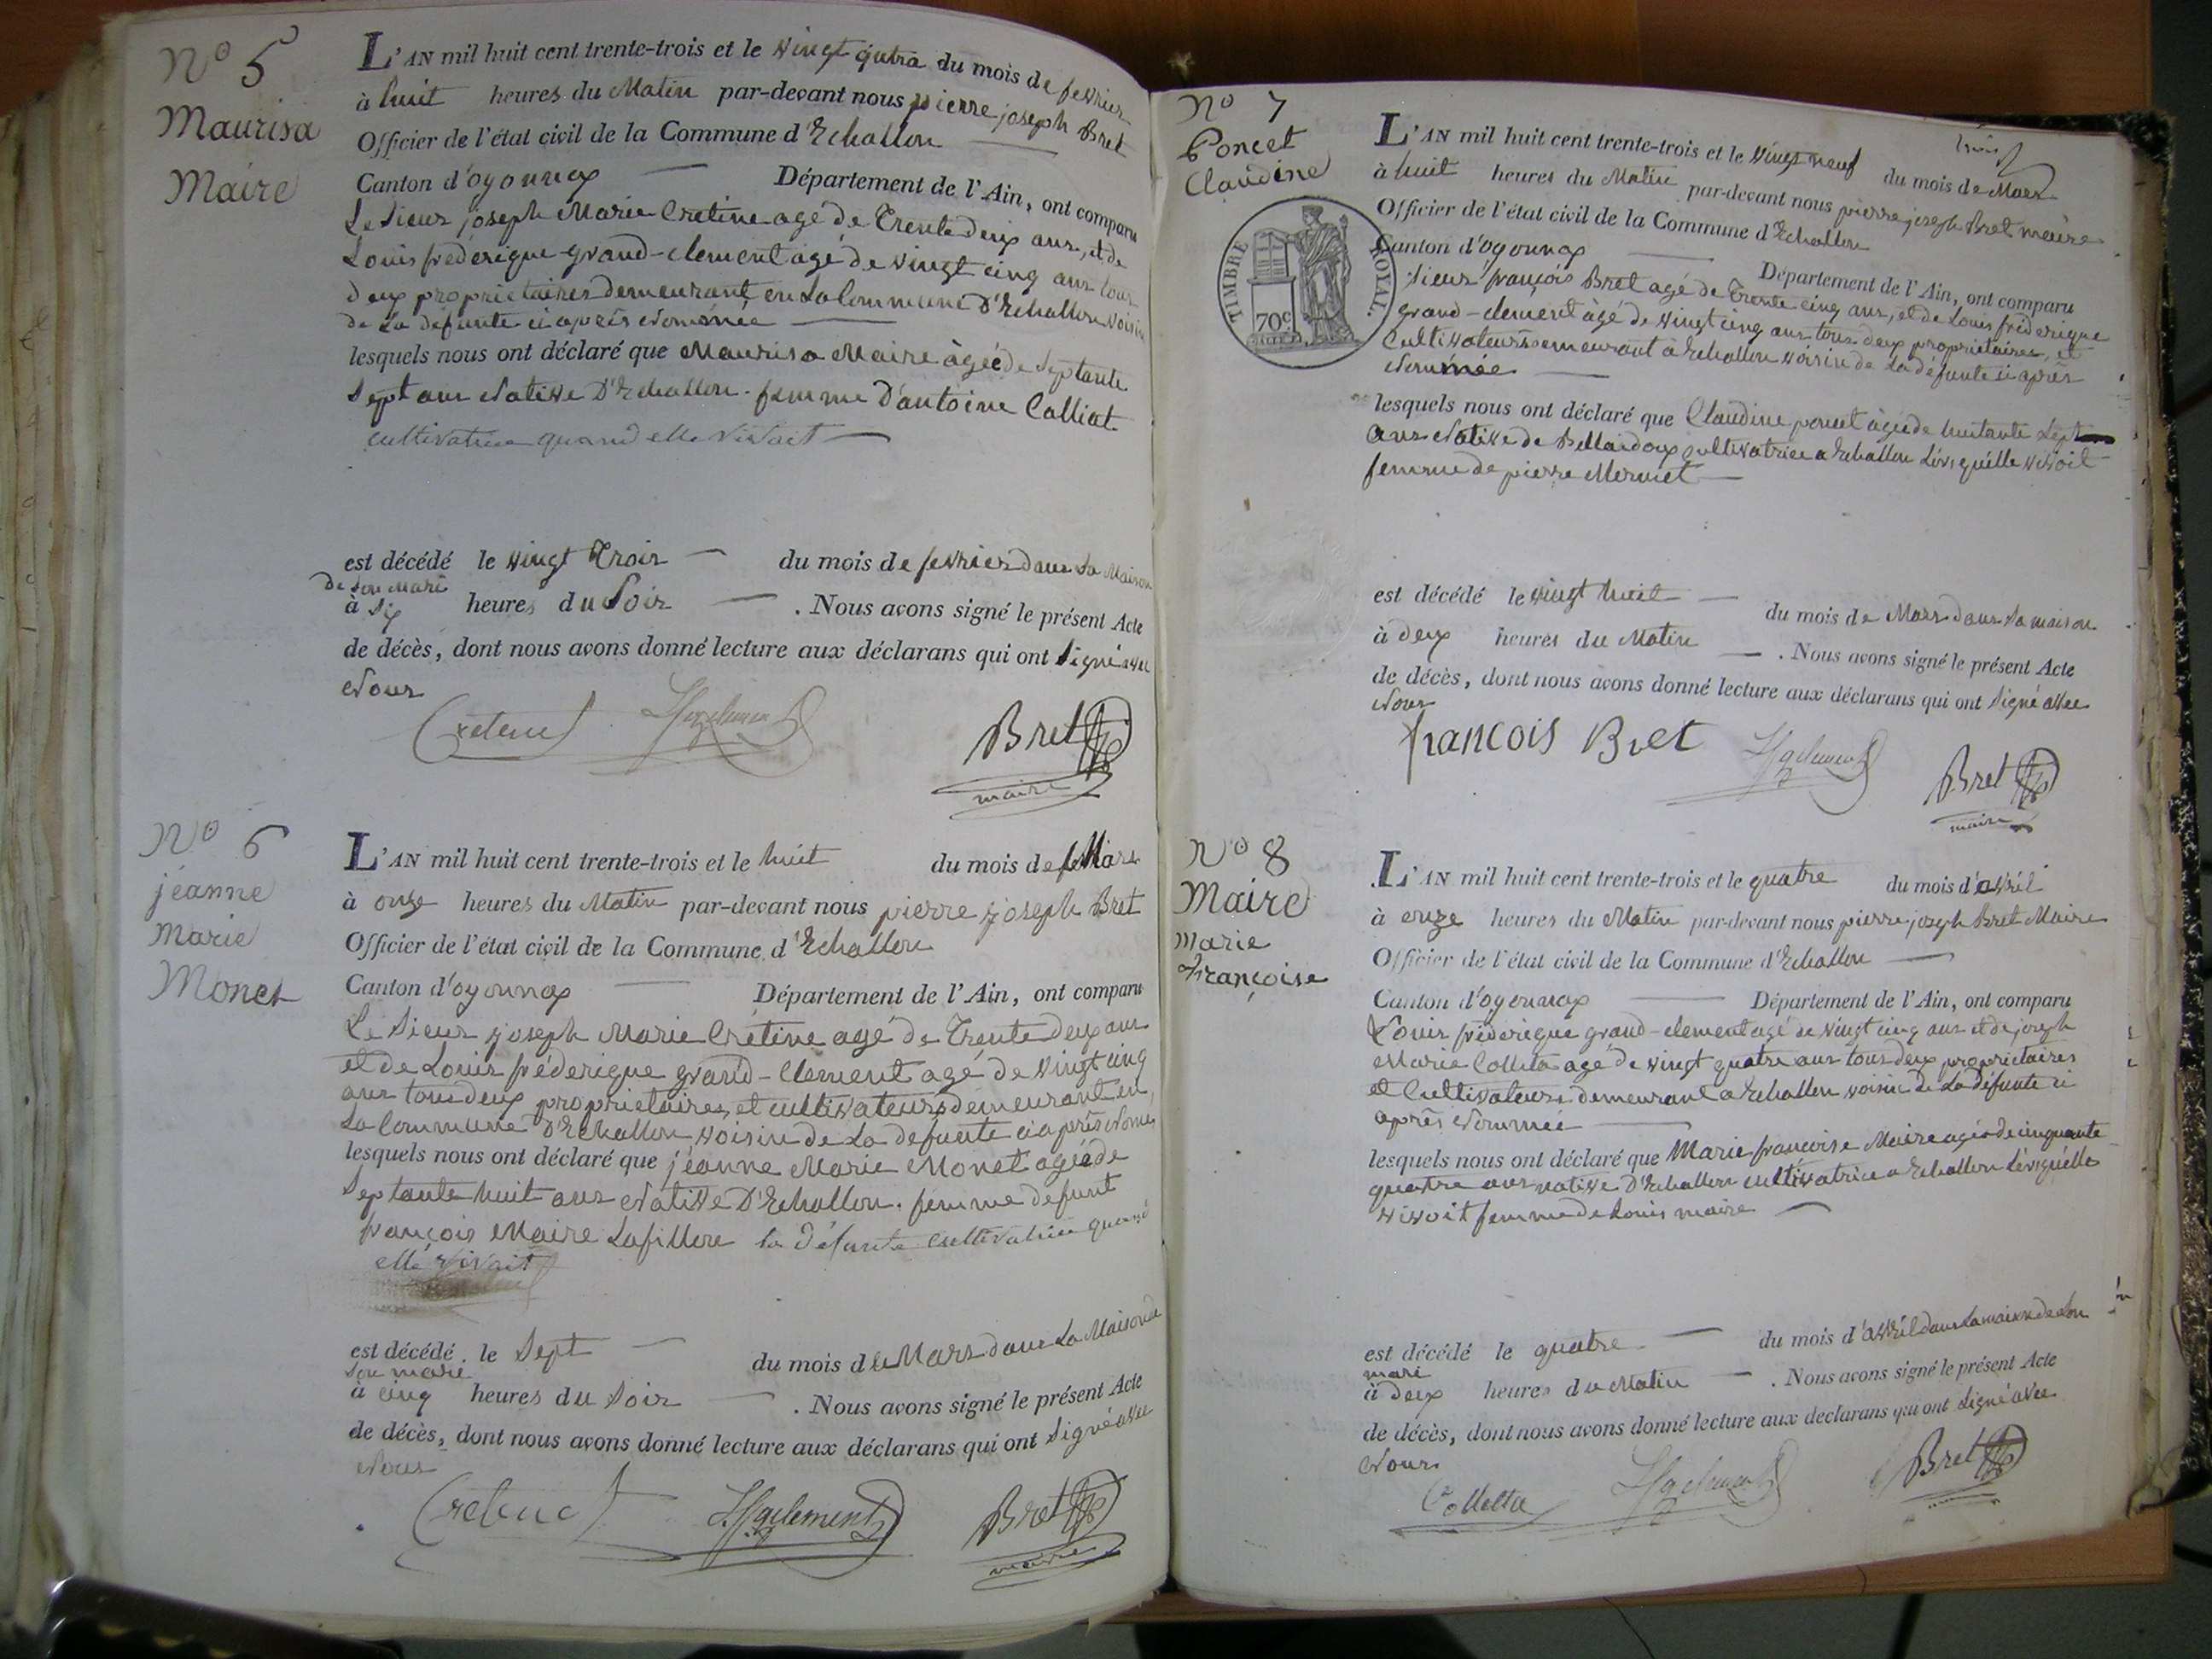 N° 5
Maurisa
Maire
L'AN mil huit cent trente-trois et le vingt qutra du mois de fevrier
à huit heures du Matin par-devant nous pierre joseph Bret
Officier de l'état civil de la Commune d'Echallon
Canton d'oyonnax Département de l'Ain, ont comparu
Le Sieur joseph Marie Cretine agé de Trente deux ans, et de
Louis frédérique grand-clement agé de vingt cinq ans tous
deux proprietaires demeurant en La Commune D'Echallon voisin
de La défunte ci après Nommée
lesquels nous ont déclaré que Maurisa Maire àgée de Septante
Sept ans Native D'Echallon. femme D'antoine Calliat
cultivatrice quand elle vivait
est décédé le vingt Trois du mois de fevrier dans La Maison
de Son Mari
à Six heures du Soir . Nous avons signé le présent Acte
de décès, dont nous avons donné lecture aux déclarans qui ont Signé avec
Nous
Cretene Bret
maire
N° 6
jéanne
Marie
Monet
L'AN mil huit cent trente-trois et le huit du mois de Mars
à onze heures du Matin par-devant nous pierre joseph Bret
Officier de l'état civil de la Commune d'Echallon
Canton d'oyonnax Département de l'Ain, ont comparu
Le Sieur joseph Marie Crétine agé de Trente Deux ans
et de Louis fréderique grand-Clement agé de vingt cinq
ans tous deux proprietaires et cultivateurs demeurant en
La Commune D'Echallon voisin de La defunte ci après Nomé
lesquels nous ont déclaré que jéanne Marie Monet agée de
Septante huit ans Native D'Echallon. femme defunt
françois Maire Lafillere la défunte cultivatrice quand
elle vivait
est décédé le Sept du mois de Mars dans La Maison de
Son mari
à cinq heures du Soir . Nous avons signé le présent Acte
de décès, dont nous avons donné lecture aux déclarans qui ont Signé avec
Nous
Cretene Lfgclement Bret
maire
N° 7
Poncet
Claudine
TIMBRE ROYAL.
70c
trois
L'AN mil huit cent trente-trois et le vingt neuf du mois de Mars
à huit heures du Matin par-devant nous pierre joseph Bret maire
Officier de l'état civil de la Commune d'Echallon
Canton d'oyonnax Département de l'Ain, ont comparu
Sieur françois Bret agé de Trente cinq ans, et de Louis fréderique
grand-clement àgé de vingt cinq ans tous deux proprietaires, et
Cultivateurs demeurant à Echallon voisin de La défunte ci après
Nommée
lesquels nous ont déclaré que Claudine poncet àgée de huitante Sept
ans Native de Bellaidoux cultivatrice a Echallon Lors quélle vivoit
femme de pierre Mermet
est décédé le vingt huit du mois de Mars dans Sa maison
à deux heures du Matin . Nous avons signé le présent Acte
de décès, dont nous avons donné lecture aux déclarans qui ont Signé avec
Nous
francois Bret Lfgclement Bret
maire
N° 8
Maire
Marie
Françoise
L'AN mil huit cent trente-trois et le quatre du mois d'avril
à onze heures du Matin par-devant nous pierre joseph Bret Maire
Officier de l'état civil de la Commune d'Echallon
Canton d'oyonnax Département de l'Ain, ont comparu
Louis fréderique grand-clement agé de vingt cinq ans et de joseph
Marie Colleta agé de vingt quatre ans tous deux proprietaires
et Cultivateurs demeurant a Echallon voisin de La défunte ci
après Nommée
lesquels nous ont déclaré que Marie françoise Maire agée de cinquante
quatre ans native D'Echallon cultivatrice a Echallon Lorsquélle
vivoit femme de Louis maire
est décédé le quatre du mois d'avril dans La maison de Son
mari
à deux heures du Matin . Nous avons signé le présent Acte
de décès, dont nous avons donné lecture aux declarans qui ont Signé avec
Nous
Colletta Lfgclement Bret